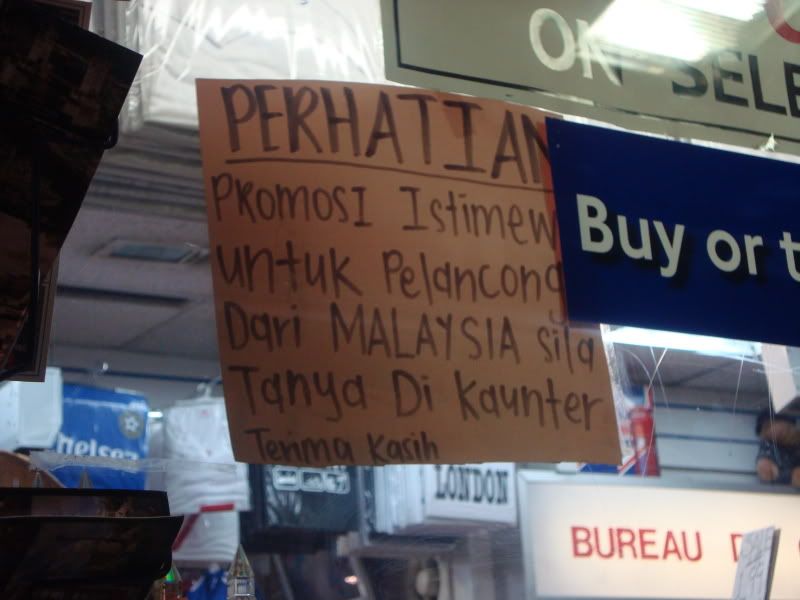 ON SELE
PERHATIAN
Promosi Istimew
untuk Pelancong
Dari MALAYSIA sila
Tanya Di Kaunter
Terima Kasih
Buy or t
helsea
LONDON
BUREAU D